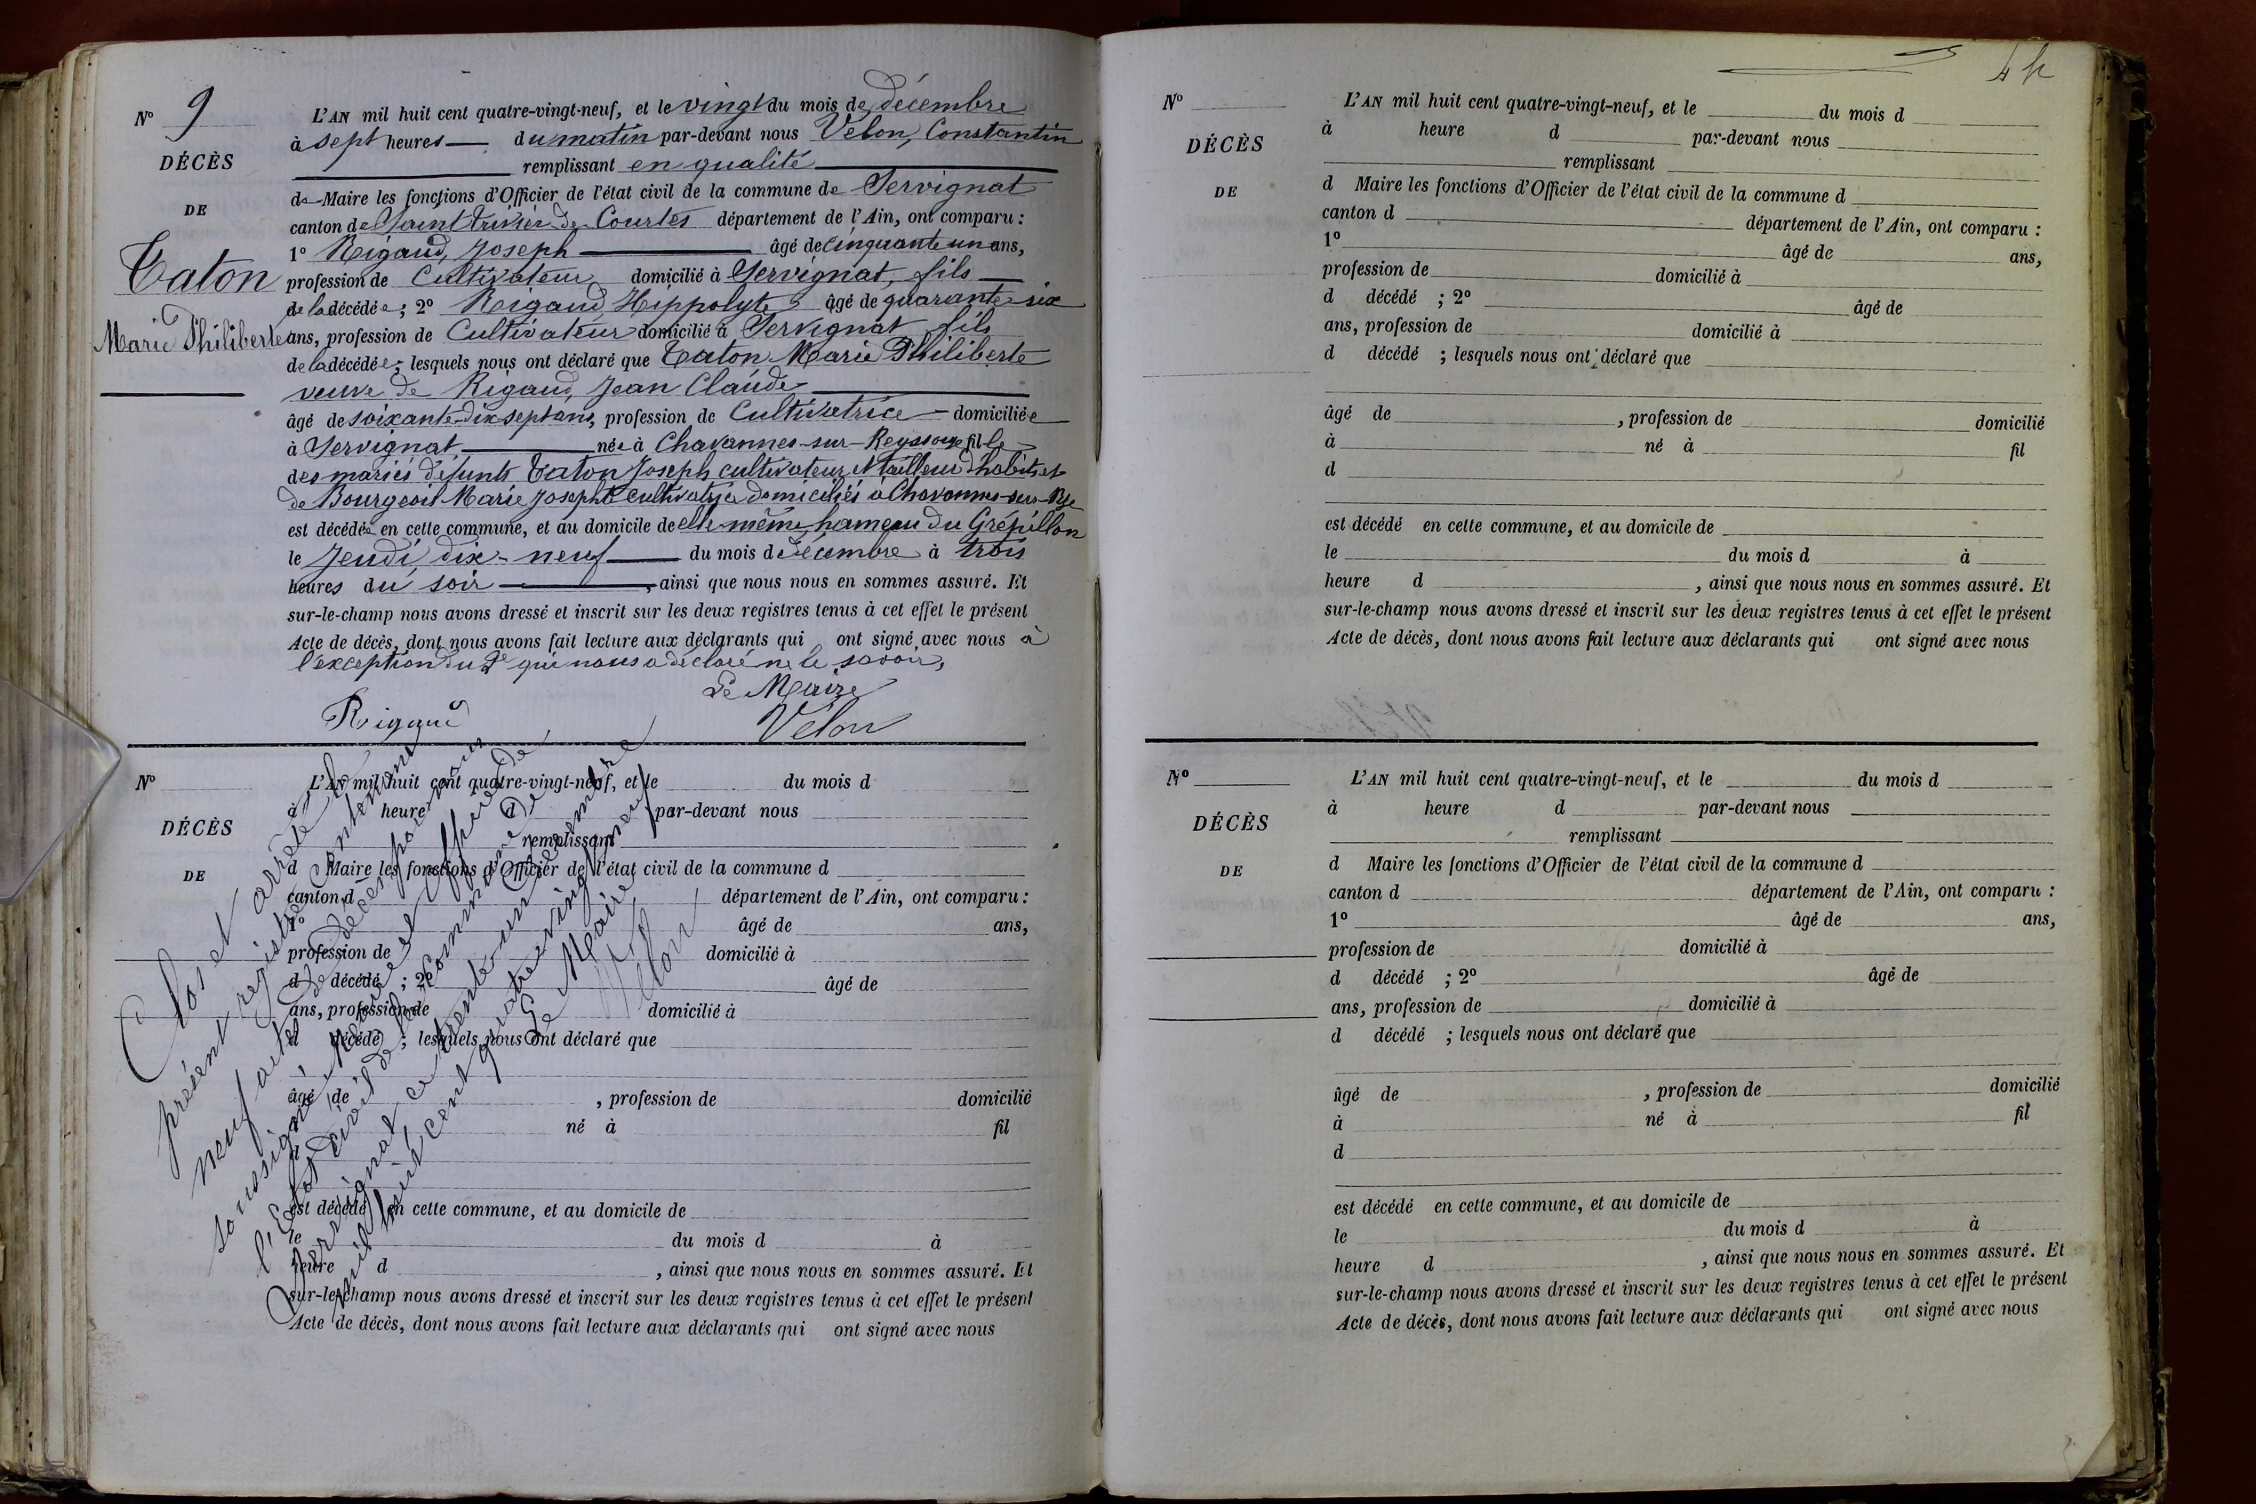 N° 9
DÉCÈS
DE
Taton
Marie Philiberte
L'AN mil huit cent quatre-vingt-neuf, et le vingt du mois de décembre
à sept heures du matin par-devant nous Velon, Constantin
remplissant en qualité
de Maire les fonctions d'Officier de l'état civil de la commune de Servignat
canton de Saint Trivier de Courtes département de l'Ain, ont comparu :
1° Rigaud, Joseph âgé de cinquante un ans,
profession de Cultivateur domicilié à Servignat, fils
de la décédée ; 2° Rigaud Hippolyte âgé de quarante-six
ans, profession de Cultivateur domicilié à Servignat fils
de la décédée ; lesquels nous ont déclaré que Taton Marie Philiberte
veuve de Rigaud, Jean Claude
âgé de soixante-dix sept ans, profession de Cultivatrice domiciliée
à Servignat, née à Chavannes-sur-Reyssouze fille
des mariés défunts Taton Joseph cultivateur et tailleur d'habits et
de Bourgeois Marie Josephte cultivatrice domiciliés à Chavannes-sur-Rsze
est décédée en cette commune, et au domicile de elle-même hameau du Grépillon
le Jeudi dix-neuf du mois décembre à trois
heures du soir, ainsi que nous nous en sommes assuré. Et
sur-le-champ nous avons dressé et inscrit sur les deux registres tenus à cet effet le présent
Acte de décès, dont nous avons fait lecture aux déclarants qui ont signé avec nous à
l'exception du 2e qui nous a déclaré ne le savoir,
Le Maire
Rigaud Vélon
N°
DÉCÈS
DE
L'AN mil huit cent quatre-vingt-neuf, et le du mois d
à heure d par-devant nous
remplissant
d Maire les fonctions d'Officier de l'état civil de la commune d
canton d département de l'Ain, ont comparu :
1° âgé de ans,
profession de domicilié à
d décédé ; 2° âgé de
ans, profession de domicilié à
d décédé ; lesquels nous ont déclaré que
âgé de , profession de domicilié
à né à fil
d
est décédé en cette commune, et au domicile de
le du mois d à
heure d , ainsi que nous nous en sommes assuré. Et
sur-le-champ nous avons dressé et inscrit sur les deux registres tenus à cet effet le présent
Acte de décès, dont nous avons fait lecture aux déclarants qui ont signé avec nous
Clos et arrêté le
présent registre contenant
neuf actes de décès par nous
soussigné Maire et officier de
l'Etat civil de la commune de
Servignat ce trente-un décembre
mil huit cent quatre vingt neuf
Le Maire
Vélon
4h
N°
DÉCÈS
DE
L'AN mil huit cent quatre-vingt-neuf, et le du mois d
à heure d par-devant nous
remplissant
d Maire les fonctions d'Officier de l'état civil de la commune d
canton d département de l'Ain, ont comparu :
1° âgé de ans,
profession de domicilié à
d décédé ; 2° âgé de
ans, profession de domicilié à
d décédé ; lesquels nous ont déclaré que
âgé de , profession de domicilié
à né à fil
d
est décédé en cette commune, et au domicile de
le du mois d à
heure d , ainsi que nous nous en sommes assuré. Et
sur-le-champ nous avons dressé et inscrit sur les deux registres tenus à cet effet le présent
Acte de décès, dont nous avons fait lecture aux déclarants qui ont signé avec nous
N°
DÉCÈS
DE
L'AN mil huit cent quatre-vingt-neuf, et le du mois d
à heure d par-devant nous
remplissant
d Maire les fonctions d'Officier de l'état civil de la commune d
canton d département de l'Ain, ont comparu :
1° âgé de ans,
profession de domicilié à
d décédé ; 2° âgé de
ans, profession de domicilié à
d décédé ; lesquels nous ont déclaré que
âgé de , profession de domicilié
à né à fil
d
est décédé en cette commune, et au domicile de
le du mois d à
heure d , ainsi que nous nous en sommes assuré. Et
sur-le-champ nous avons dressé et inscrit sur les deux registres tenus à cet effet le présent
Acte de décès, dont nous avons fait lecture aux déclarants qui ont signé avec nous